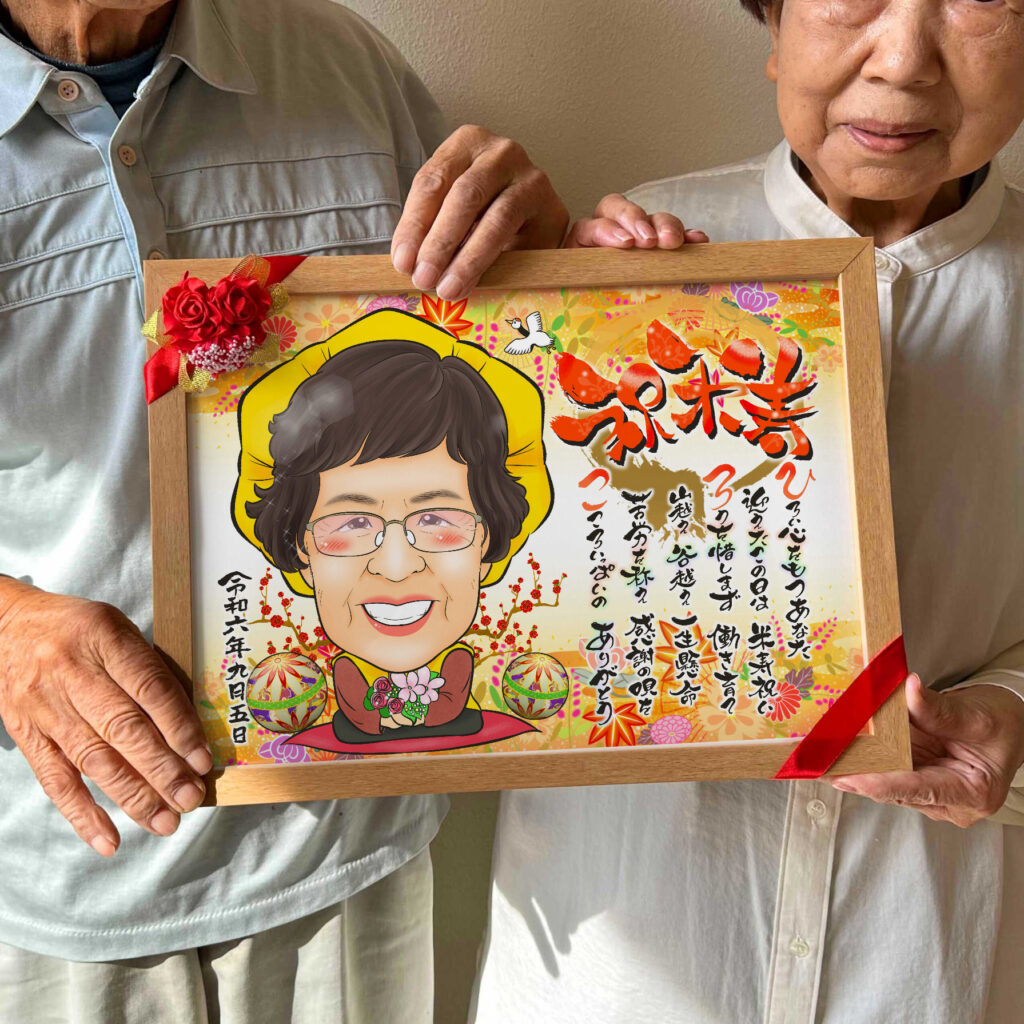 祝米寿
ひろい心をもつあなた
迎えたこの日は 米寿祝い
ろうを惜しまず 働き育て
山越え 谷越え 一生懸命
苦労を称え 感謝の唄を
こころいっぱいの ありがとう
令和六年九月五日